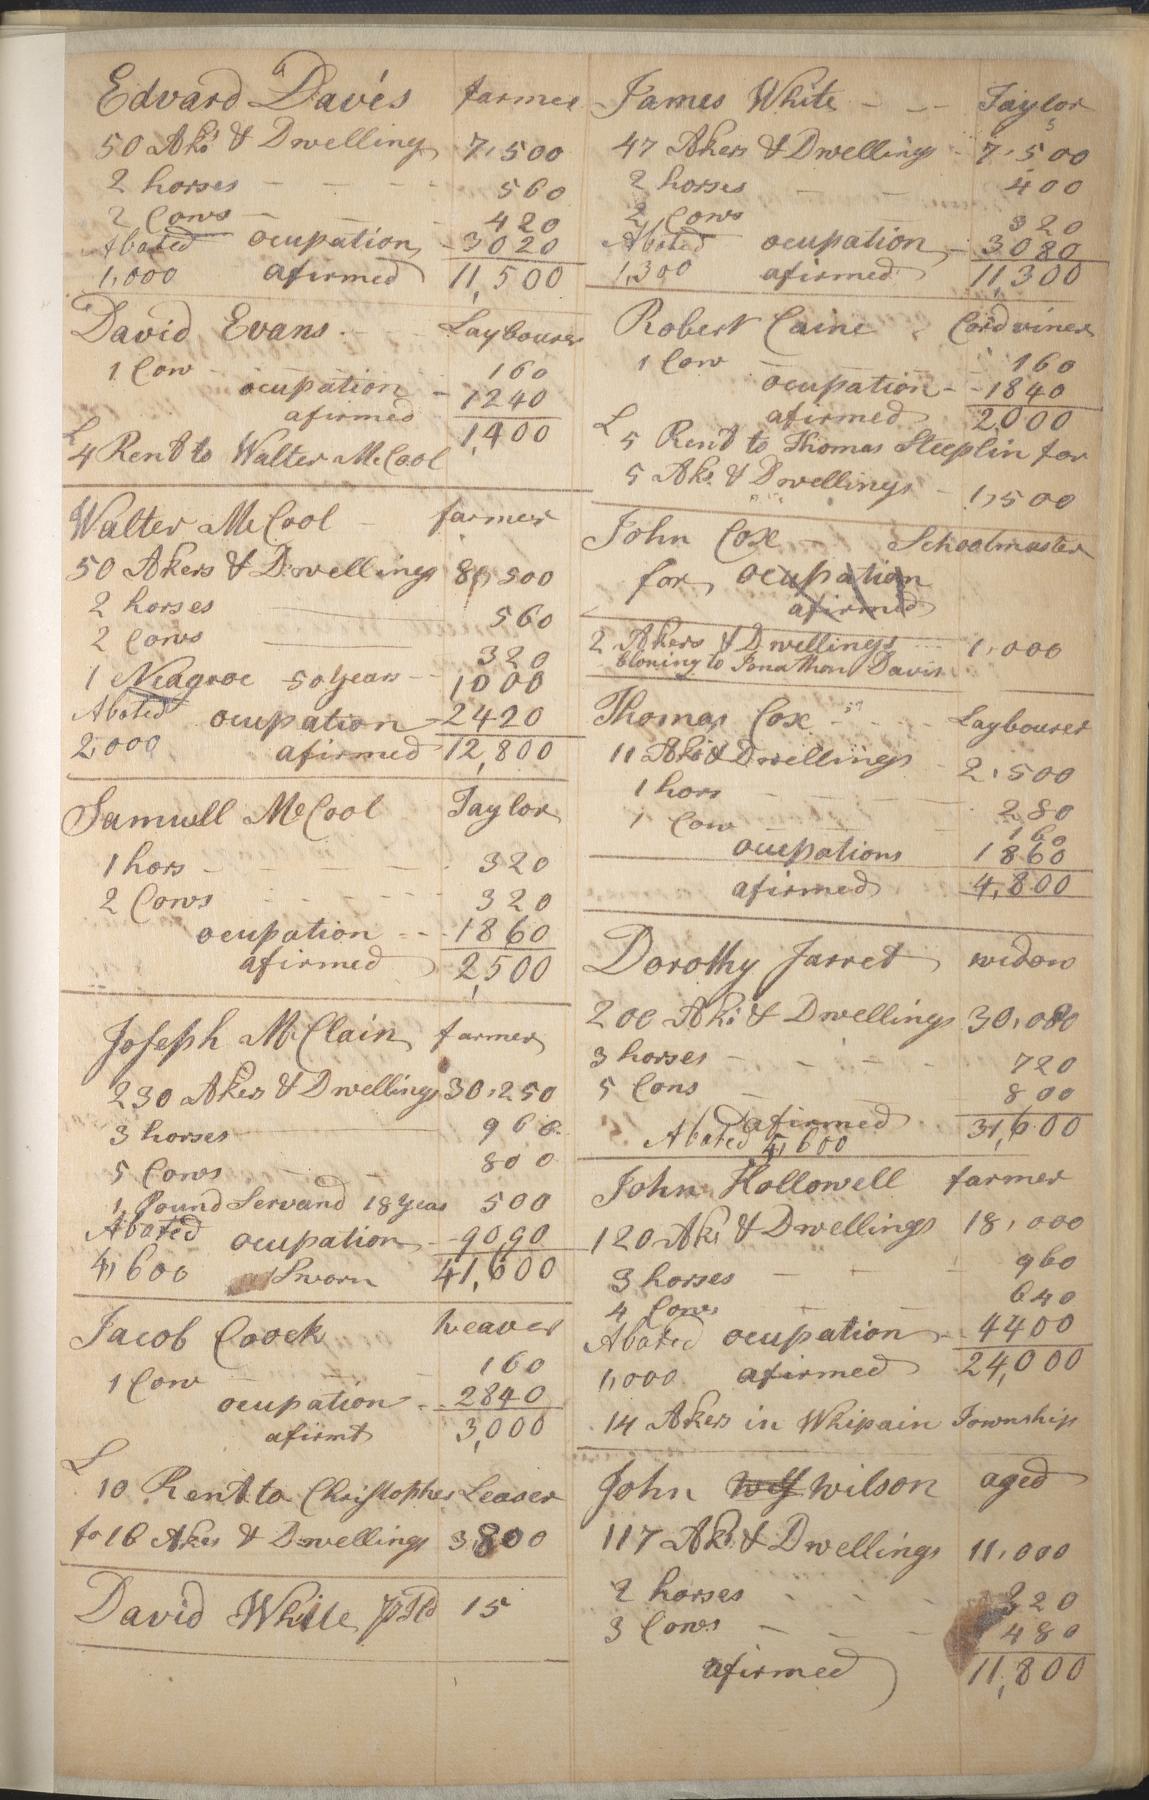 Edvard Davis farmer
50 Aks & Dwelling 7,500
2 horses 560
2 Cows 420
Abated ocupation 3020
1,000 afirmed 11,500
David Evans Laybourer
1 Cow 160
ocupation 1240
afirmed 1,400
L
4 Rent to Walter McCool
Walter McCool farmer
50 Akers & Dwellings 8,500
2 horses 560
2 Cows 320
1 Neagroe 50 years 1000
Abated ocupation 2420
2,000 afirmed 12,800
Samuell McCool Taylor
1 hors 320
2 Cows 320
ocupation 1860
afirmed 2,500
Joseph McClain farmer
230 Akers & Dwellings 30,250
3 horses 960
5 Cows 800
1 Bound Servand 18 year 500
Abated ocupation 9090
4,600 Sworn 41,600
Jacob Coock weaver
1 Cow 160
ocupation 2840
afirmt 3,000
L
10 Rent to Christopher Leaser
fo 16 Akes & Dwellings 3,800
David White 15
James White Taylor
47 Akers & Dwellings 7,500
2 horses 400
2 Cows 320
Abated ocupation 3080
1,300 afirmed 11,300
Robert Caine Cordviner
1 Cow 160
ocupation 1840
afirmed 2000
L
5 Rent to Thomas Steeplin for
5 Aks & Dwellings 1,500
John Cox Schoolmaster
for ocupation
afirmed
2 Akers & Dwellings 1,000
bloning to Jonathan Davis
Thomas Cox Laybourer
11 Aks & Dwellings 2,500
1 hors 280
1 Cow 160
ocupations 1860
afirmed 4,800
Dorothy Jarret widow
200 Aks & Dwellings 30,080
3 horses 720
5 Cows 800
afirmed 31,600
Abated 5,600
John Hollowell farmer
120 Aks & Dwellings 18,000
3 horses 960
4 Cows 640
Abated ocupation 4400
1,000 afirmed 24,000
14 Akers in Whipain Township
John Wilson aged
117 Aks & Dwellings 11,000
2 horses 320
3 Cows 480
afirmed 11,800